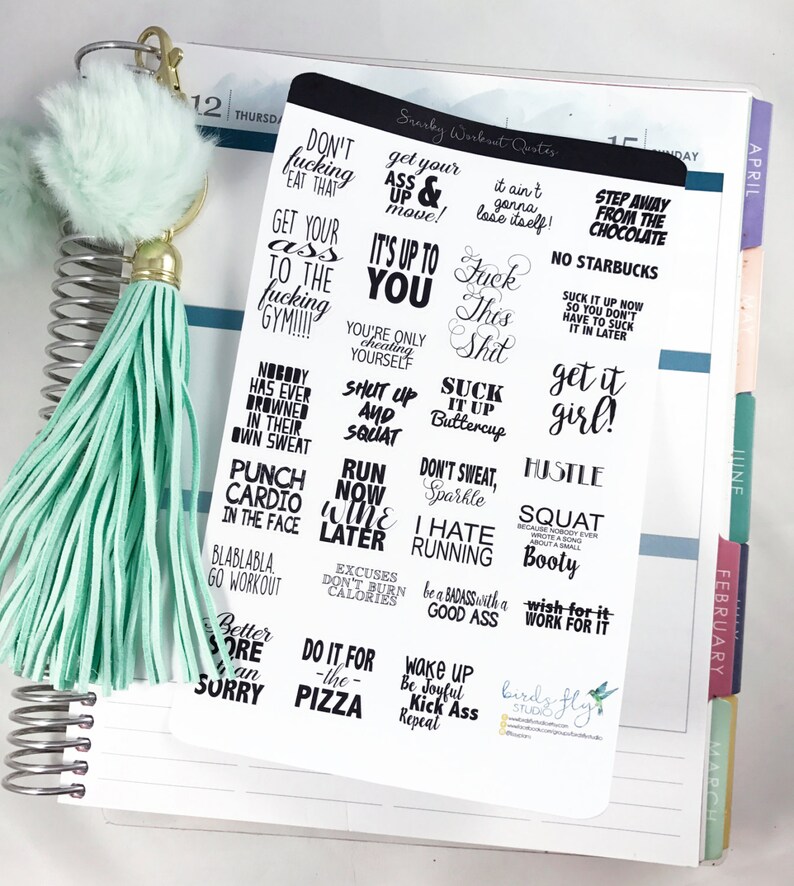 12
THURSDAY
15
SUNDAY
Snarky Workout Quotes
DON'T
fucking
EAT THAT
get your
ASS
UP &
move!
it ain't
gonna
lose itself!
STEP AWAY
FROM THE
CHOCOLATE
GET YOUR
ass
TO THE
fucking
GYM!!!!
IT'S UP TO
YOU
Fuck
This
Shit
NO STARBUCKS
SUCK IT UP NOW
SO YOU DON'T
HAVE TO SUCK
IT IN LATER
YOU'RE ONLY
cheating
YOURSELF
NOBODY
HAS EVER
DROWNED
IN THEIR
OWN SWEAT
SHUT UP
AND
SQUAT
SUCK
IT UP
Buttercup
get it
girl!
PUNCH
CARDIO
IN THE FACE
RUN
NOW
WINE
LATER
DON'T SWEAT,
Sparkle
HUSTLE
I HATE
RUNNING
SQUAT
BECAUSE NOBODY EVER
WROTE A SONG
ABOUT A SMALL
Booty
BLABLABLA.
GO WORKOUT
EXCUSES
DON'T BURN
CALORIES
be a BADASS with a
GOOD ASS
wish for it
WORK FOR IT
Better
SORE
than
SORRY
DO IT FOR
-the-
PIZZA
WAKE UP
Be Joyful
Kick Ass
Repeat
birds fly
STUDIO
APRIL
MAY
JUNE
JULY
FEBRUARY
MARCH